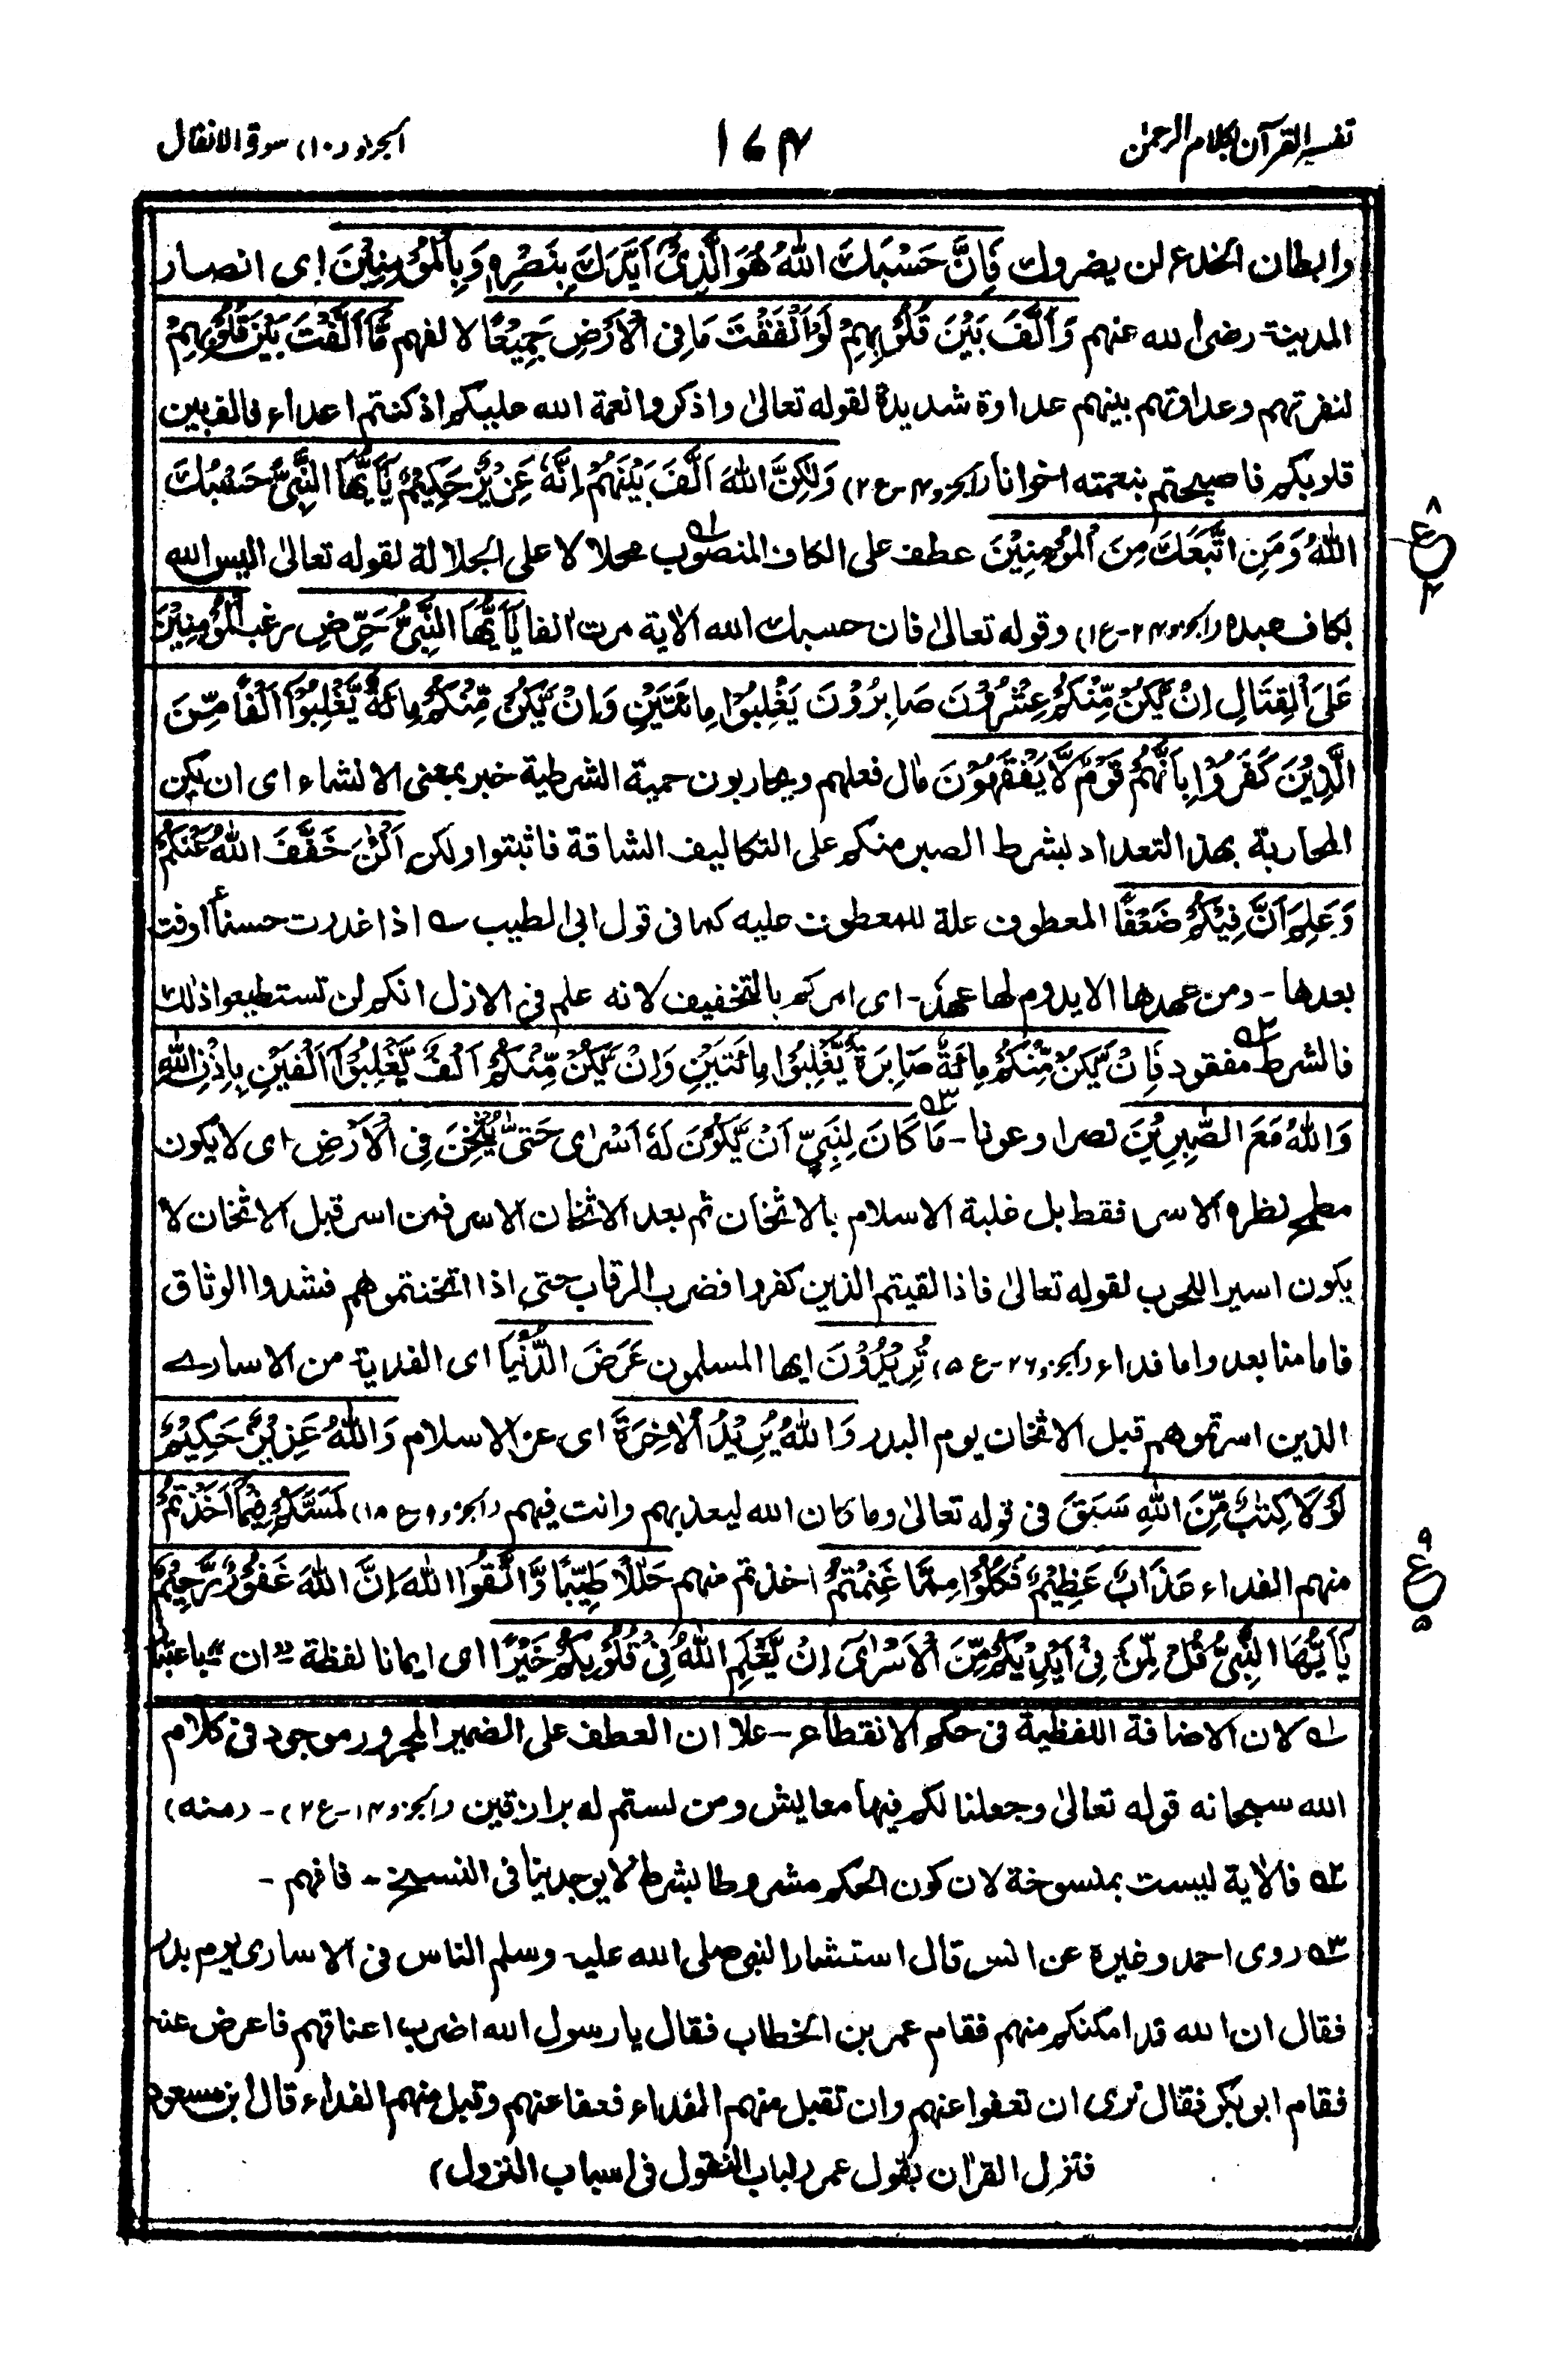 تفسير القرآن بكلام الرحمن
١٧٤
الجزء (١٠) سورة الانفال
وابطان الخدع لن يضروك فَإِنَّ حَسْبَكَ اللهُ هُوَ الَّذِيْ اَيَّدَكَ بِنَصْرِهٖ وَبِالْمُؤْمِنِيْنَ اى انصار
المدينة رضى الله عنهم وَاَلَّفَ بَيْنَ قُلُوْبِهِمْ لَوْ اَنْفَقْتَ مَا فِى الْاَرْضِ جَمِيْعًا لا لفهم مَّا اَلَّفْتَ بَيْنَ قُلُوْبِهِمْ
لنفرتهم وعداوتهم بينهم عداوة شديدة لقوله تعالىٰ واذكروا نعمة الله عليكم اذ كنتم اعداء فالف بين
قلوبكم فاصبحتم بنعمته اخوانا (الجزو ٤-ع ٢) وَلٰكِنَّ اللهَ اَلَّفَ بَيْنَهُمْ اِنَّهٗ عَزِيْزٌ حَكِيْمٌ يٰٓاَيُّهَا النَّبِيُّ حَسْبُكَ
٨
ع
٤
اللهُ وَمَنِ اتَّبَعَكَ مِنَ الْمُؤْمِنِيْنَ عطف على الكاف المنصوب ١ محلا لا على الجلالة لقوله تعالىٰ اليس الله
بكاف عبده (الجزو ٢٤-ع ١) وقوله تعالىٰ فان حسبك الله الاٰية مرت اٰنفا يٰٓاَيُّهَا النَّبِيُّ حَرِّضِ رغب الْمُؤْمِنِيْنَ
عَلَى الْقِتَالِ اِنْ يَّكُنْ مِّنْكُمْ عِشْرُوْنَ صَابِرُوْنَ يَغْلِبُوْا مِائَتَيْنِ وَاِنْ يَّكُنْ مِّنْكُمْ مِائَةٌ يَّغْلِبُوْٓا اَلْفًا مِّنَ
الَّذِيْنَ كَفَرُوْا بِاَنَّهُمْ قَوْمٌ لَّا يَفْقَهُوْنَ مآل فعلهم ويحاربون حمية الشرطية خبر بمعنى الانشاء اى ان يكن
المحاربة بهذا التعداد بشرط الصبر منكم على التكاليف الشاقة فاثبتوا ولكن اَلْـٰٔنَ خَفَّفَ اللهُ عَنْكُمْ
وَعَلِمَ اَنَّ فِيْكُمْ ضَعْفًا المعطوف علة للمعطوف عليه كما فى قول ابى الطيب ؎ اذا غدرت حسناء اوفت
بعدها - ومن عهدها الا يدوم لها عهد - اى امركم بالتخفيف لانه علم فى الازل انكم لن تستطيعوا ذلك
فالشرط ٢ مفقود فَاِنْ يَّكُنْ مِّنْكُمْ مِائَةٌ صَابِرَةٌ يَّغْلِبُوْا مِائَتَيْنِ وَاِنْ يَّكُنْ مِّنْكُمْ اَلْفٌ يَّغْلِبُوْٓا اَلْفَيْنِ بِاِذْنِ اللهِ
وَاللهُ مَعَ الصّٰبِرِيْنَ نصرا وعونا - ٣ مَا كَانَ لِنَبِيٍّ اَنْ يَّكُوْنَ لَهٗٓ اَسْرٰى حَتّٰى يُثْخِنَ فِى الْاَرْضِ اى لا يكون
مطمح نظره الاسر فقط بل غلبة الاسلام بالاثخان ثم بعد الاثخان الاسر فمن اسر قبل الاثخان لا
يكون اسيرا للحرب لقوله تعالىٰ فاذا لقيتم الذين كفروا فضرب الرقاب حتى اذا اثخنتموهم فشدوا الوثاق
فاما منا بعد واما فداء (الجزو ٢٦-ع ٥) تُرِيْدُوْنَ ايها المسلمون عَرَضَ الدُّنْيَا اى الفدية من الاسارے
الذين اسرتموهم قبل الاثخان يوم البدر وَاللهُ يُرِيْدُ الْاٰخِرَةَ اى عز الاسلام وَاللهُ عَزِيْزٌ حَكِيْمٌ
لَوْلَا كِتٰبٌ مِّنَ اللهِ سَبَقَ فى قوله تعالىٰ وما كان الله ليعذبهم وانت فيهم (الجزو ٩ ع ١٨) لَمَسَّكُمْ فِيْمَآ اَخَذْتُمْ
٩
ع
٥
منهم الفداء عَذَابٌ عَظِيْمٌ فَكُلُوْا مِمَّا غَنِمْتُمْ اخذتم منهم حَلٰلًا طَيِّبًا وَّاتَّقُوا اللهَ اِنَّ اللهَ غَفُوْرٌ رَّحِيْمٌ
يٰٓاَيُّهَا النَّبِيُّ قُلْ لِّمَنْ فِيْٓ اَيْدِيْكُمْ مِّنَ الْاَسْرٰٓى اِنْ يَّعْلَمِ اللهُ فِيْ قُلُوْبِكُمْ خَيْرًا اى ايمانا لفظة "ان" باعتبار
١ لان الاضافة اللفظية فى حكم الانقطاع - علا ان العطف على الضمير المجرور موجود فى كلام
الله سبحانه قوله تعالىٰ وجعلنا لكم فيها معايش ومن لستم له برازقين (الجزو ١٤-ع ٢) - (منه)
٢ فالاٰية ليست بمنسوخة لان كون الحكم مشروطا بشرط لا يوجد ينافى النسخ - فافهم -
٣ روى احمد وغيره عن انس قال استشار النبى صلى الله عليه وسلم الناس فى الاسارى يوم بدر
فقال ان الله قد امكنكم منهم فقام عمر بن الخطاب فقال يا رسول الله اضرب اعناقهم فاعرض عنه
فقام ابو بكر فقال نرى ان تعفوا عنهم وان تقبل منهم الفداء فعفا عنهم وقبل منهم الفداء قال ابن مسعود
فنزل القرآن بقول عمر (لباب النقول فى اسباب النزول)